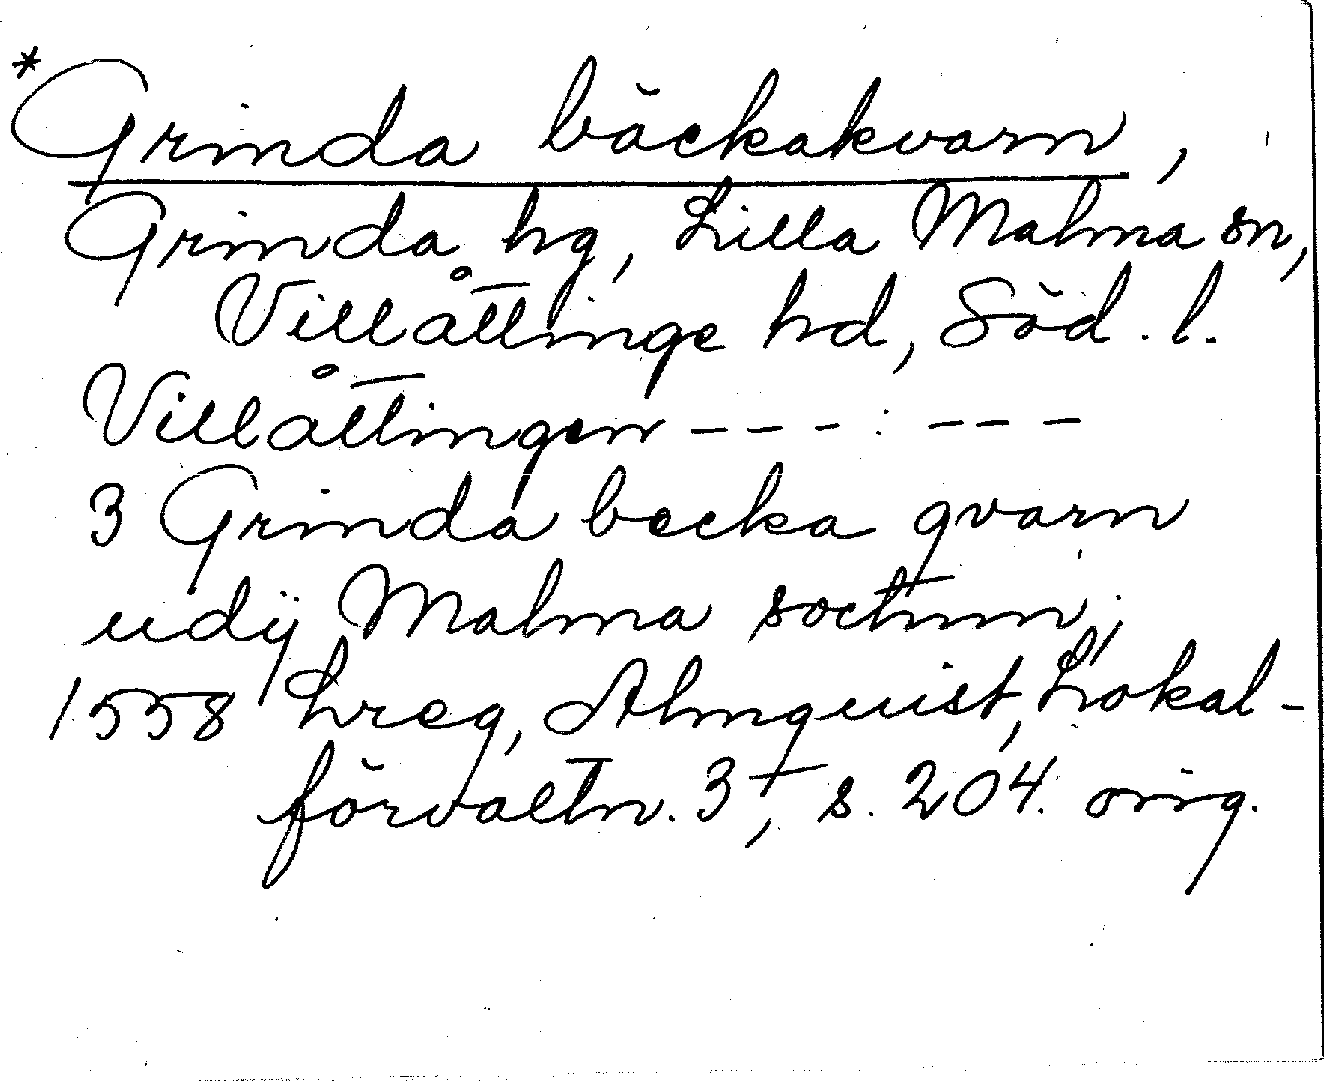 *Grinda bäckakvarn,
Grinda hg, Lilla Malma sn,
Villåttinge hd, Söd. l.
Villåttingen - - - : - - -
3 Grinda becka qvarn
udij Malma sochnn;
1558 Lreg, Almquist, Lokal-
förvaltn. 3, s. 204. orig.